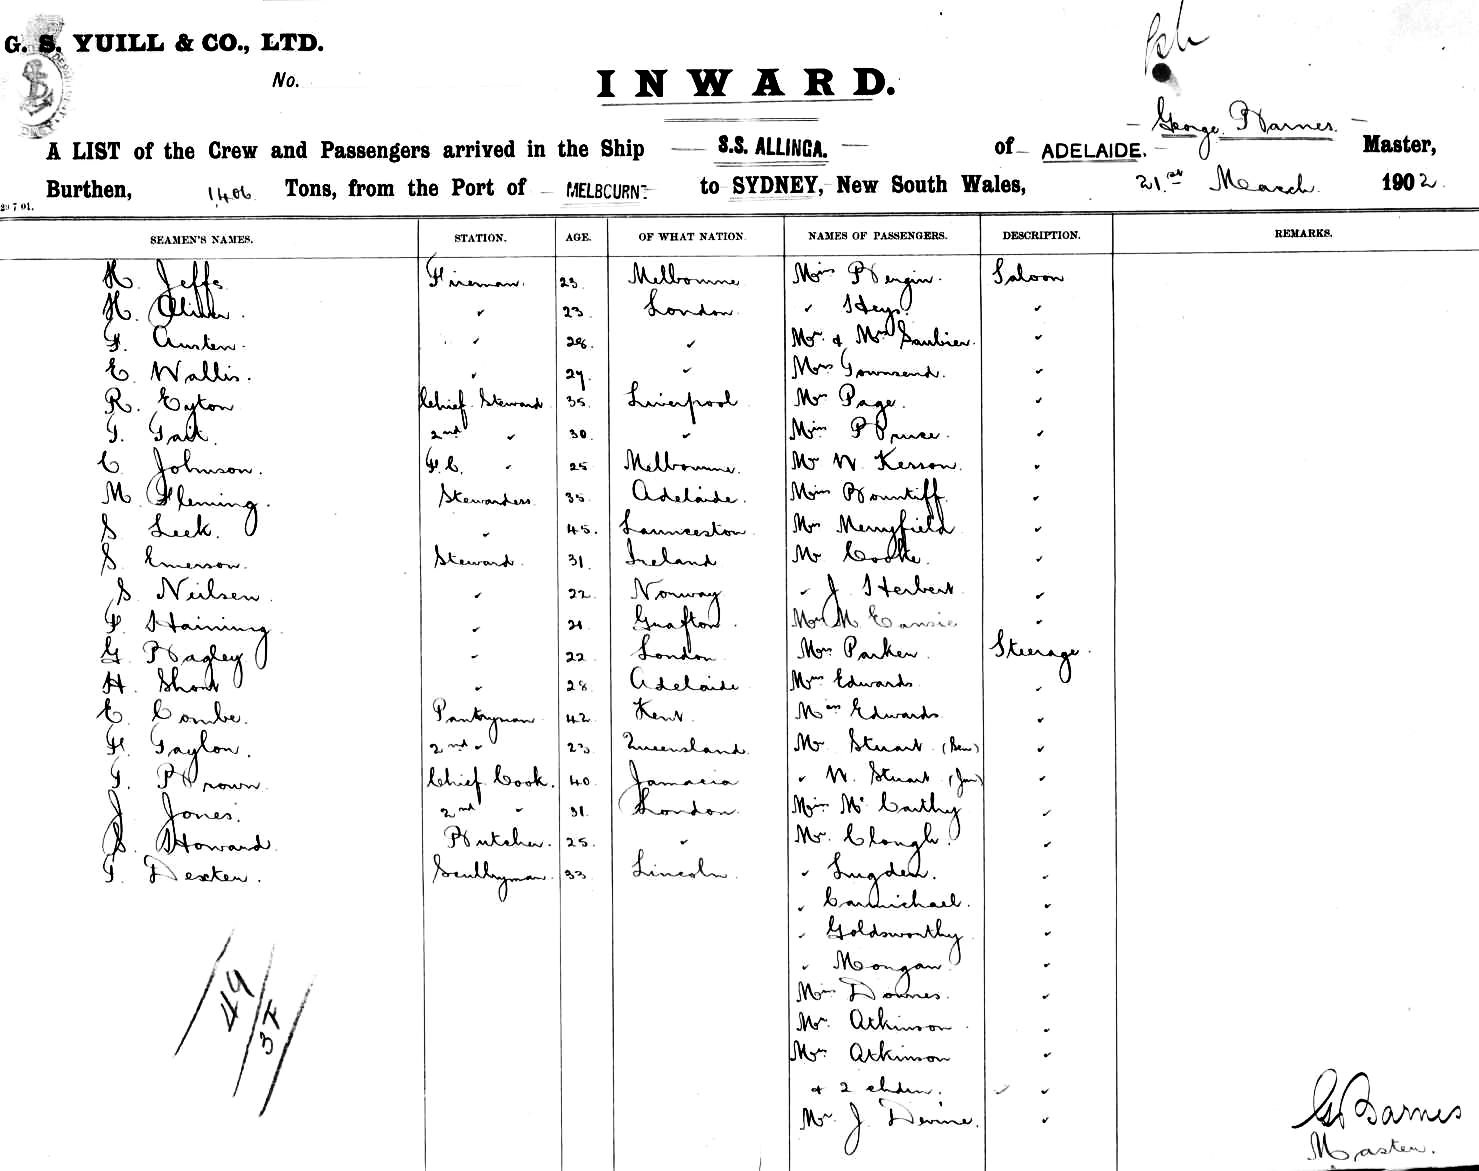 G. S. YUILL & CO., LTD.
No.
INWARD.
George Barnes.
A LIST of the Crew and Passengers arrived in the Ship S.S. ALLINGA. of ADELAIDE. Master,
Burthen, 1406 Tons, from the Port of MELBOURNE to SYDNEY, New South Wales, 21st March 1902.
29 7 01.
SEAMEN'S NAMES. STATION. AGE. OF WHAT NATION. NAMES OF PASSENGERS. DESCRIPTION. REMARKS.
H. Jeffs Fireman. 23. Melbourne Miss Bergin. Saloon
H. Oliver. " 23. London. " Heys. "
F. Austen. " 28. " Mr. & Mrs Saubier. "
E. Wallis. " 27. " Mrs Townsend. "
R. Eyton Chief Steward 35. Liverpool Mr Page. "
T. Tait. 2nd " 30. " Miss Bruce. "
C. Johnson. F.C. " 25 Melbourne. Mr W. Kerson. "
M. Fleming. Stewardess 35. Adelaide. Miss Bountiff "
S Leek. " 45. Launceston Mrs Merryfield "
S. Emerson. Steward. 31. Ireland Mr Cooke. "
S. Neilsen. " 22. Norway " J. Herbert "
F. Haining " 21. Grafton. Mr M "
G. Bagley " 22. London Mrs Parker. Steerage.
H. Short " 28. Adelaide Mrs Edwards. "
E. Combe. Pantryman. 42. Kent. Miss Edwards "
F. Taylor. 2nd " 23. Queensland. Mr. Stuart (Sen) "
T. Brown. Chief Cook. 40. Jamacia " W. Stuart (Jun) "
J. Jones. 2nd " 31. London. Miss McCarthy "
S. Howard. Butcher. 25. " Mr. Clough. "
T. Dexter. Scullryman. 33. Lincoln. " Lugden. "
" Carmichael. "
" Goldsworthy "
" Mongan. "
Miss Downes. "
Mr. Atkinson. "
Mrs Atkinson "
& 2 chdn. "
Mr. J. Devine. "
49
37
G Barnes
Master.